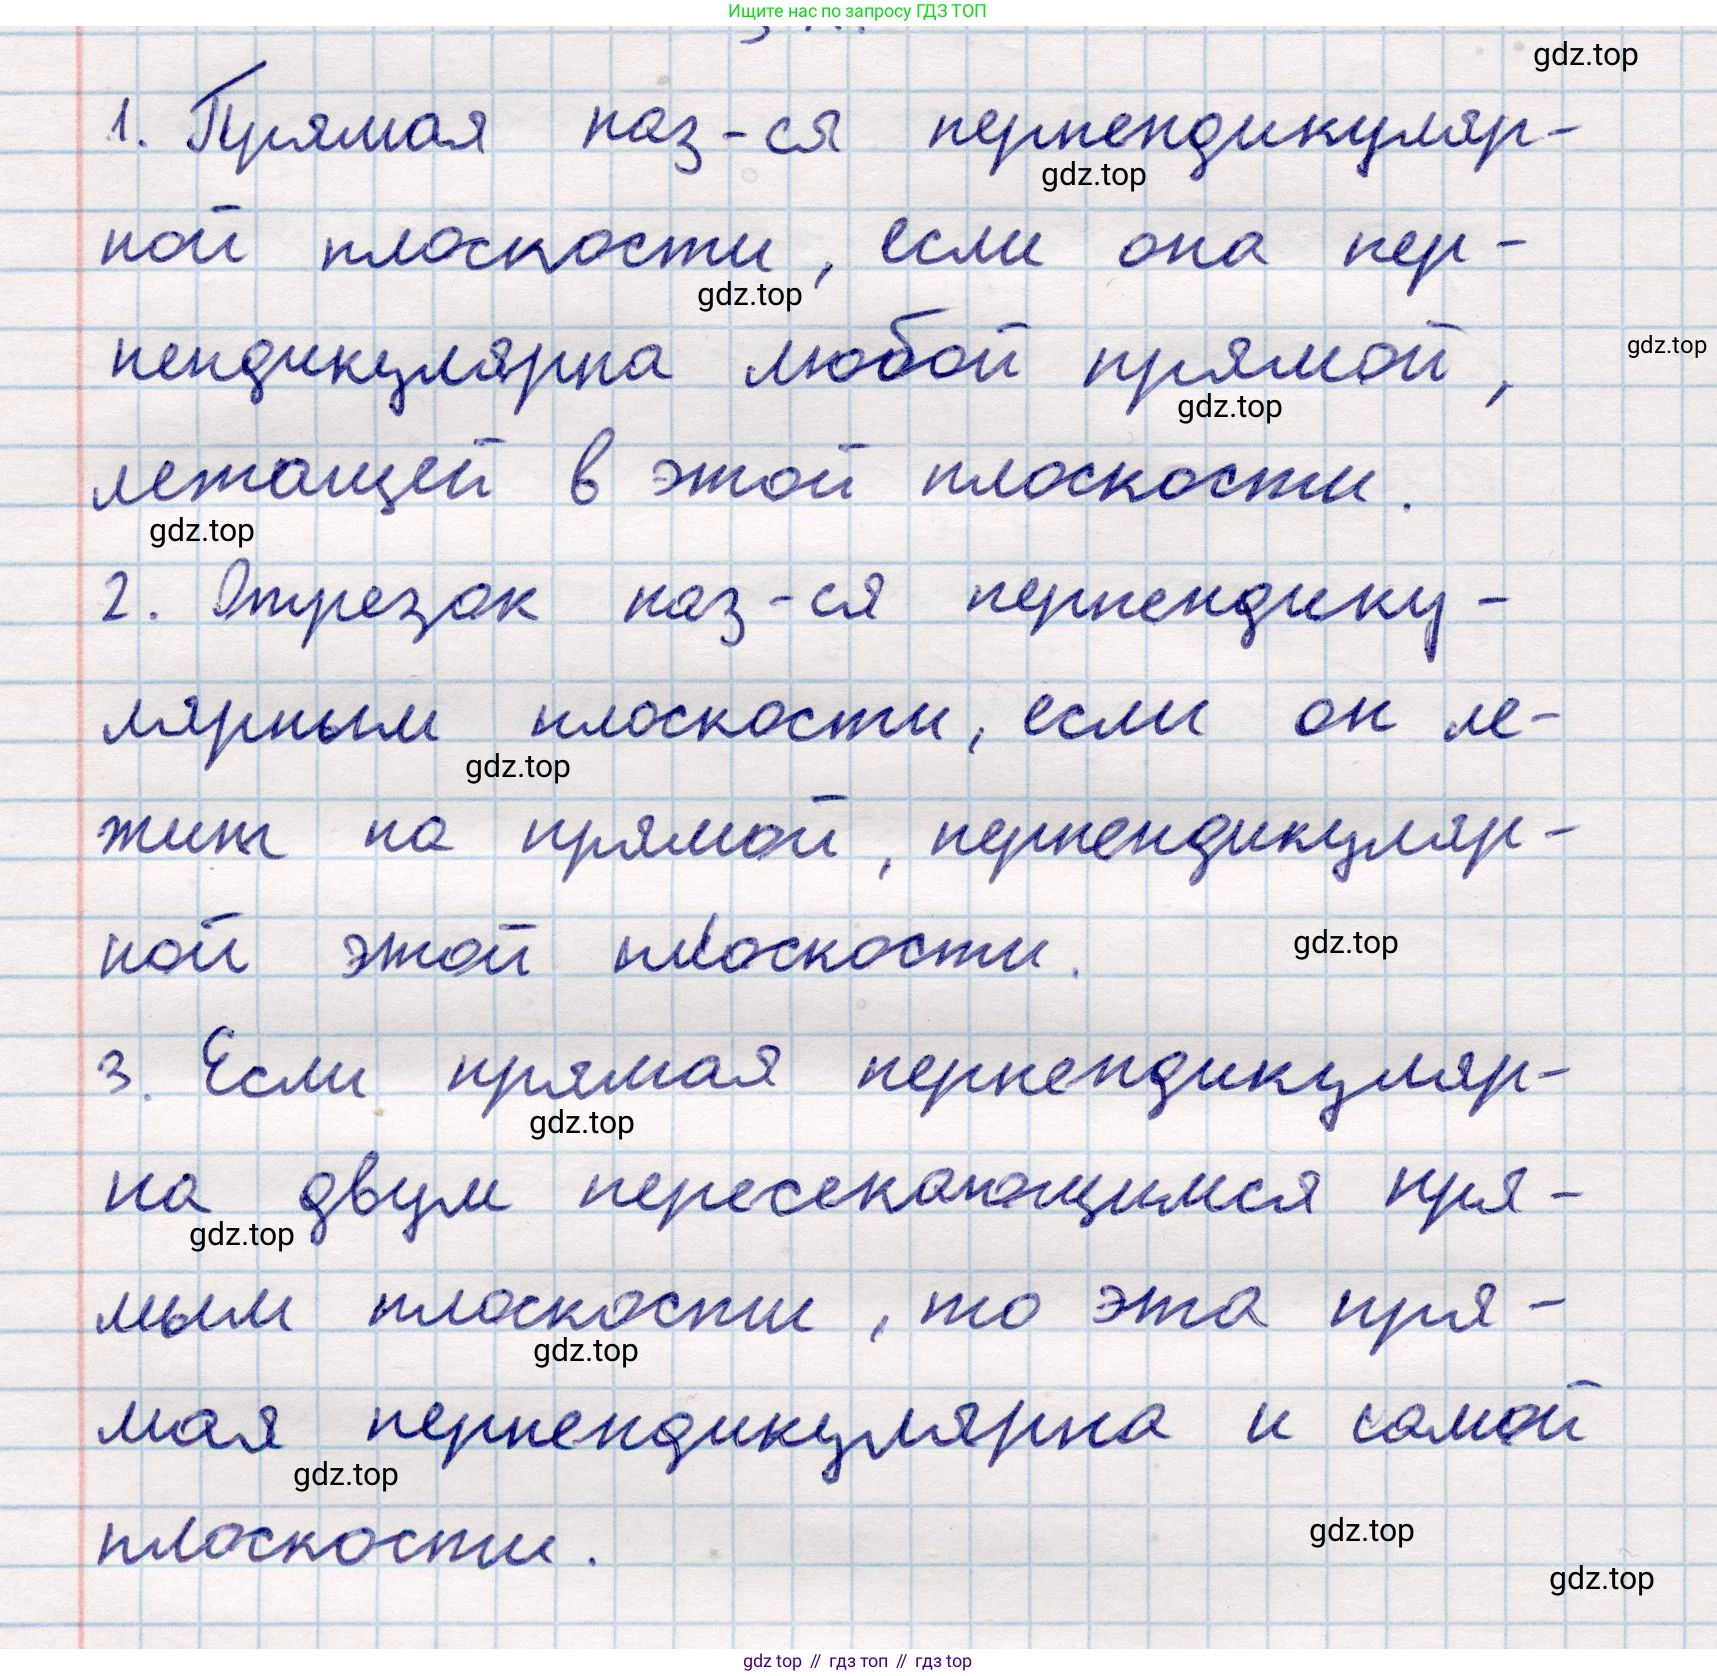 Ищите нас по запросу ГДЗ ТОП
gdz.top
1. Прямая наз-ся перпендикуляр-
gdz.top
ной плоскости, если она пер-
gdz.top
пендикулярна любой прямой,
gdz.top
gdz.top
лежащей в этой плоскости.
gdz.top
2. Отрезок наз-ся перпендику-
лярным плоскости, если он ле-
gdz.top
жит на прямой, перпендикуляр-
ной этой плоскости.
gdz.top
3. Если прямая перпендикуляр-
gdz.top
на двум пересекающимся пря-
gdz.top
мым плоскости, то эта пря-
gdz.top
мая перпендикулярна и самой
gdz.top
плоскости.
gdz.top
gdz.top
gdz.top // гдз топ // гдз top